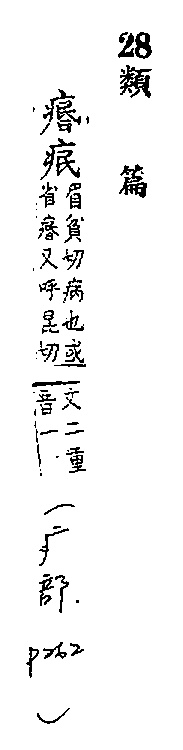 28類篇
瘖痻
眉貧切病也或
省瘖又呼昆切
文二重
音一
(疒部.
p262
)